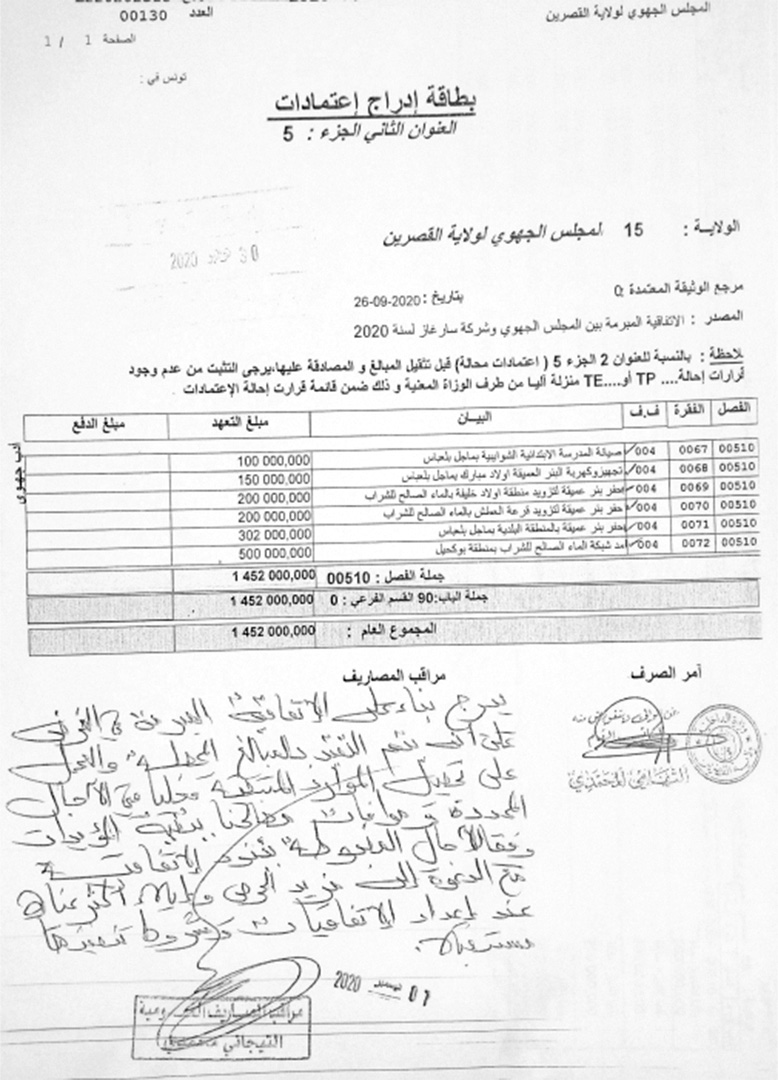 المجلس الجهوي لولاية القصرين
العدد 00130
الصفحة 1 / 1
تونس في :
بطاقة إدراج إعتمادات
العنوان الثاني الجزء : 5
30 2020
الولايــة : 15 لمجلس الجهوي لولاية القصرين
مرجع الوثيقة المعتمدة :0 بتاريخ : 26-09-2020
المصدر : الاتفاقية المبرمة بين المجلس الجهوي وشركة سارغاز لسنة 2020
ملاحظة : بالنسبة للعنوان 2 الجزء 5 ( اعتمادات محالة) قبل تثقيل المبالغ و المصادقة عليها،يرجى التثبت من عدم وجود
قرارات إحالة.... TP أو....TE منزلة آليا من طرف الوزاة المعنية و ذلك ضمن قائمة قرارت إحالة الإعتمادات
الفصل الفقرة ف.ف البيــان مبلغ التعهد مبلغ الدفع
00510 0067 004 صيانة المدرسة الابتدائية الشوابيبة بماجل بلعباس 100 000,000
00510 0068 004 تجهيزوكهربة البئر العميقة اولاد مبارك بماجل بلعباس 150 000,000
00510 0069 004 حفر بئر عميقة لتزويد منطقة اولاد خليفة بالماء الصالح للشراب 200 000,000
00510 0070 004 حفر بئر عميقة لتزويد قرعة العطش بالماء الصالح للشراب 200 000,000
00510 0071 004 حفر بئر عميقة بالمنطقة البلدية بماجل بلعباس 302 000,000
00510 0072 004 مد شبكة الماء الصالح للشراب بمنطقة بوكحيل 500 000,000
جملة الفصل : 00510 1 452 000,000
جملة الباب:90 القسم الفرعي : 0 1 452 000,000
المجموع العام : 1 452 000,000
آمر الصرف
مراقب المصاريف
يدرج بناء على الاتفاقية المبرمة في الغرض
على أن يتم التقيد بالمبالغ
على تحويل الموارد محليا في الآجال
المحددة و مصالحنا ببقية المؤيدات
وفقا للآجال المضبوطة ببنود الاتفاقية
مع الدعوة إلى مزيد الحرص وإيلاء أكثر عناية
عند إعداد الاتفاقيات وشروط تنفيذها
مستقبلا.
01 2020
مراقب المصاريف العمومية
التيجاني